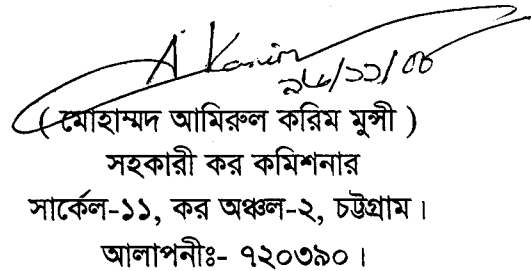 A Karim
২৬/১১/০৮
( মোহাম্মদ আমিরুল করিম মুন্সী )
সহকারী কর কমিশনার
সার্কেল-১১, কর অঞ্চল-২, চট্টগ্রাম।
আলাপনীঃ- ৭২০৩৯০।